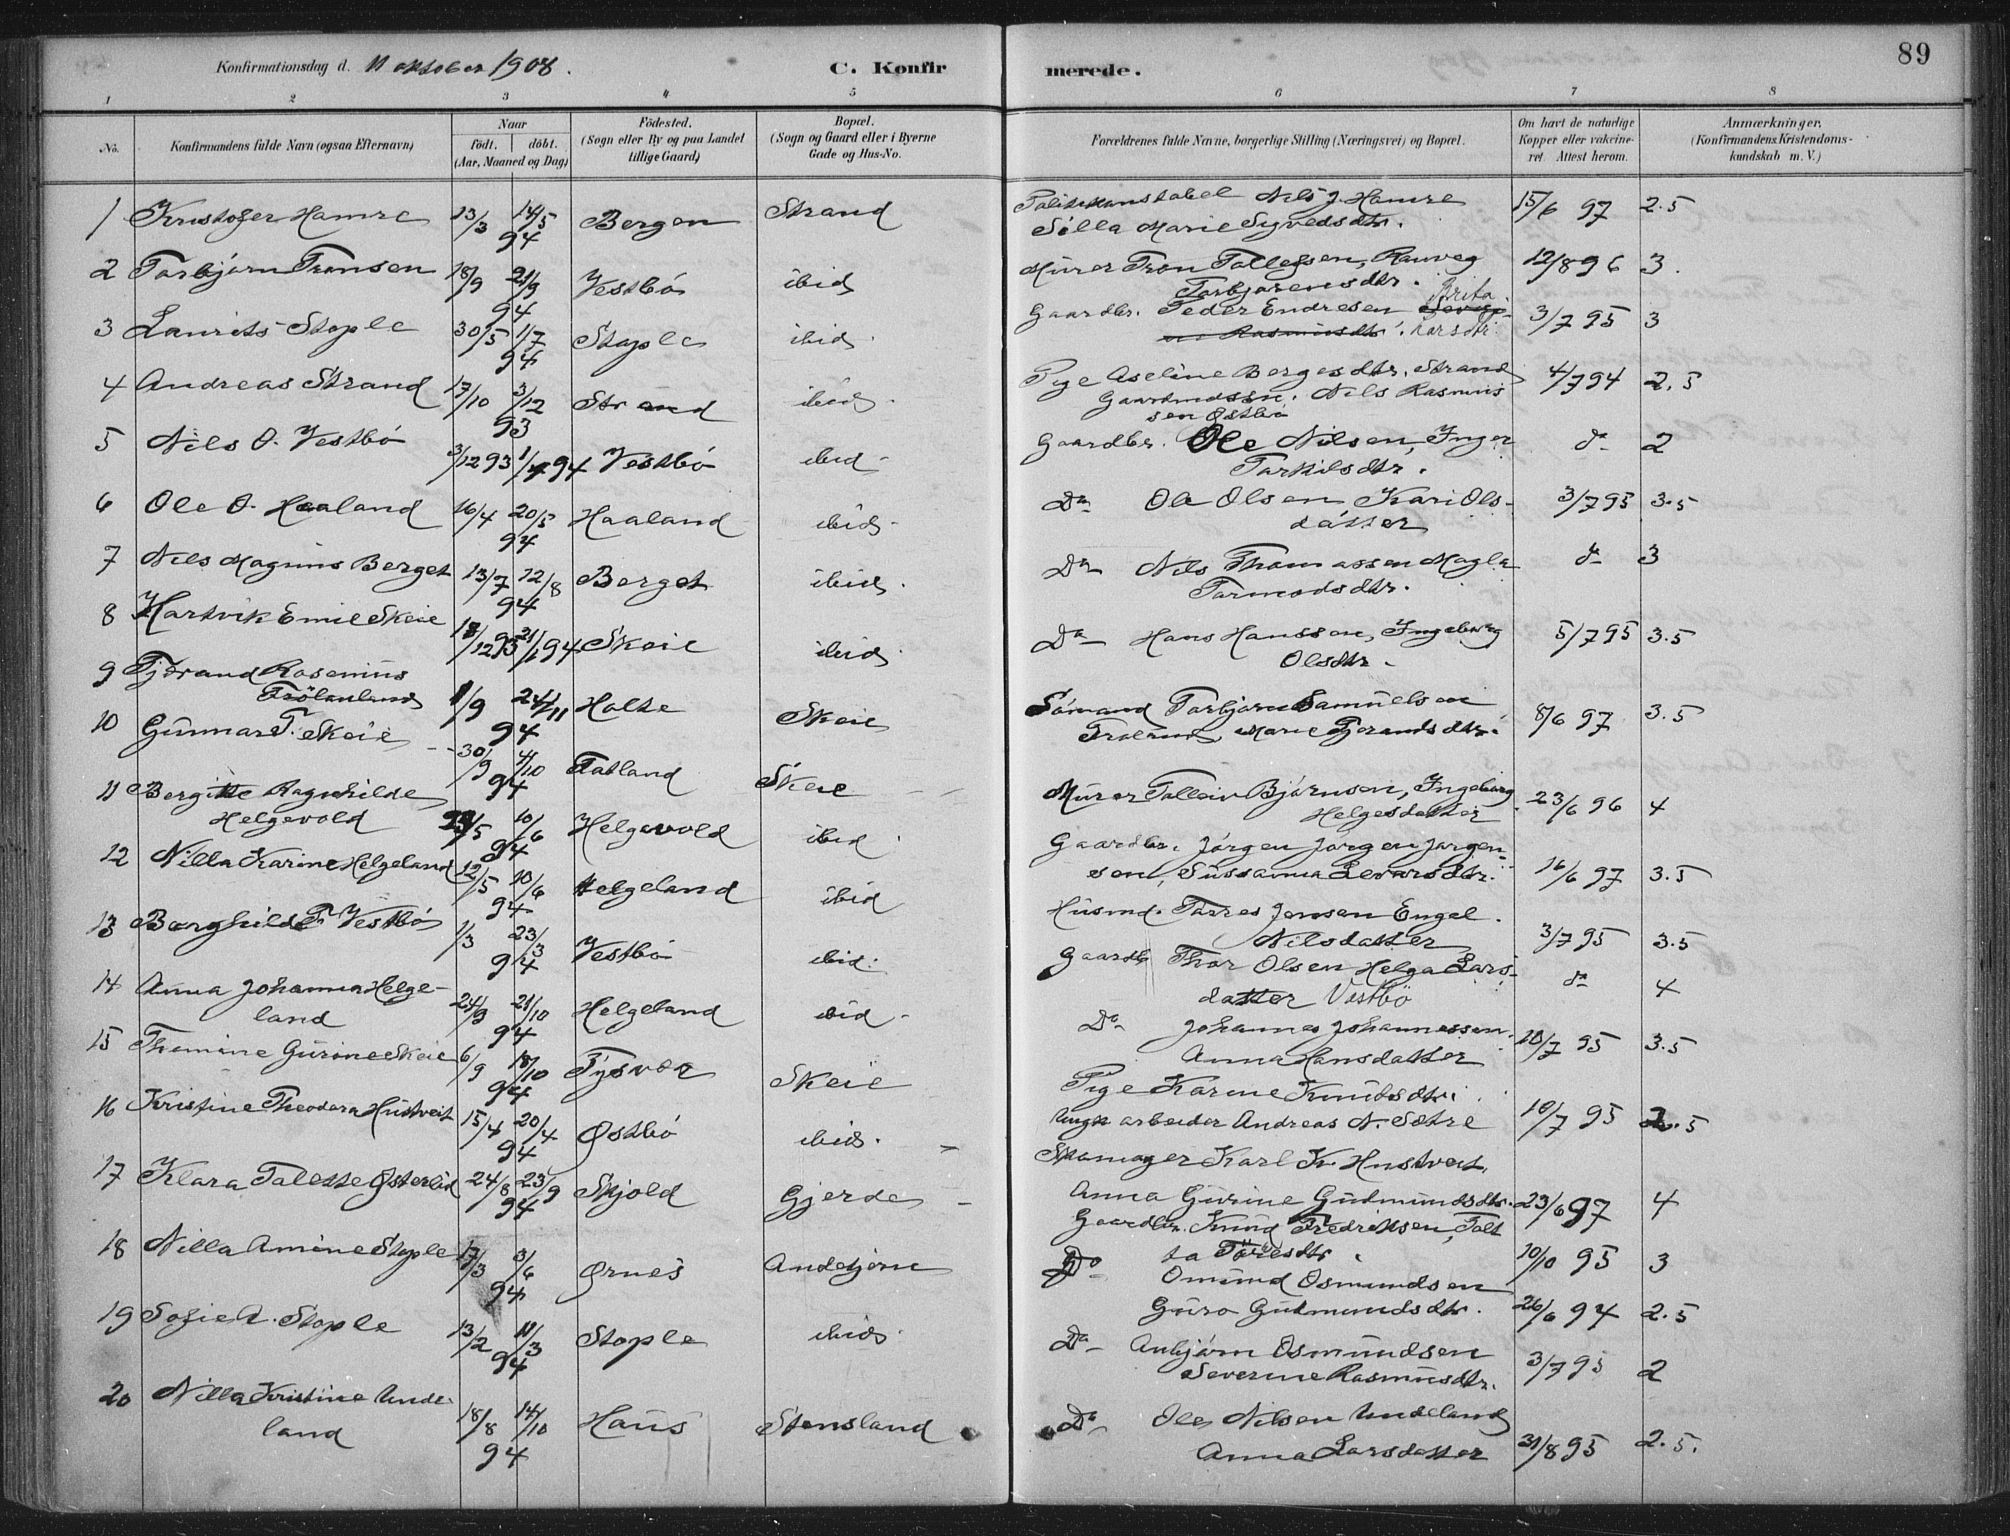 89
Konfirmationsdag d. 11 oktober 1908. C. Konfirmerede.
1 2 3 4 5 6 7 8
No. Konfirmandens fulde Navn (ogsaa Efternavn) Naar født. døbt. (Aar, Maaned og Dag) Fødested. (Sogn eller By og paa Landet tillige Gaard) Bopæl. (Sogn og Gaard eller i Byerne Gade og Hus-No. Forældrenes fulde Navne, borgerlige Stilling (Næringsvei) og Bopæl. Om havt de naturlige Kopper eller vakcineret Attest herom. Anmærkninger. (Konfirmandens Kristendomskundskab m. V.)
1 Kristofer Hamre 13/3 14/5 94 Bergen Strand Politikonstabel Nils J. Hamre
Silla Marie Syvedsdtr. 15/6 97 2.5
2 Torbjørn Tronsen 18/9 21/9 94 Vestbø ibid Murer Tron Tollefsen, Rauveg
Torbjørensdtr. 12/8 96 3.
3 Laurits Stople 30/5 1/7 94 Stople ibid. Gaardbr. Peder Endresen Brita
Rasmusdtr. Larsdtr. 3/7 95 3
4 Andreas Strand 17/10 3/12 93 Strand ibid. Pige Aseline Borgesdtr. Strand
Gaardmdssn. Nils Rasmus
sen Østbø 4/7 94 2.5
5 Nils O. Vestbø 3/12 93 1/1 94 Vestbø ibid- Gaardbr. Ole Nilsen, Inger
Torkilsdtr. do 2
6 Ole O. Haaland 16/4 20/5 94 Haaland ibid- Do Ole Olsen, Kari Ols-
datter 3/7 95 3.5
7 Nils Magnus Berget 13/7 12/8 94 Berget ibid. Do Nils Thomassen Magla
Tormodsdtr. do 3
8 Hartvik Emil Skeie 18/12 93 21/1 94 Skeie ibid. Do Hans Hanssen, Ingeborg
Olsdtr. 5/7 95 3.5
9 Tjørand Rasmus
Frölanland 1/9 24/11 94 Holte Skeie Sømand Torbjørn Samuelsen
Frøland, Marie Tjørandsdtr. 8/6 97 3.5
10 Gunnar T. Skeie 30/9 4/10 94 Tatland Skeie Murer Tolleiv Bjørnsen, Ingeborg
Helgesdatter 23/6 96 4
11 Bergitte Ragnhilde
Helgevold 29/5 10/6 94 Helgevold ibid. Gaardbr. Jørgen Jørgen Jørgen-
sen, Sussanna Levarsdtr. 16/6 97 3.5
12 Nilla Karine Helgeland 12/5 10/6 94 Helgeland ibid Husmd. Torres Jensen Engel.
Nilsdatter 3/7 95 3.5
13 Borghilde T. Vestbø 1/3 23/3 94 Vestbø ibid. Gaardbr Thor Olsen Helga Lars-
datter Vestbø do 4
14 Anna Johanna Helge-
land 24/9 21/10 94 Helgeland ibid- Do Johannes Johannessen.
Anna Hansdatter 10/7 95 3.5
15 Thomine Gurine Skeie 6/9 18/10 94 Tysvær Skeie Pige Karine Knudsdtr.
Ungk arbeider Andreas N. Sætre 10/7 95 2.5
16 Kristine Theodora Hustveit 15/4 20/4 94 Østbø ibid. Skomager Karl K. Hustveit,
Anna Gurine Gudmundsdtr. 23/6 97 4
17 Klara Talette Østerlid 24/8 23/9 94 Skjold Gjerde Gaardbr. Knud Fredriksen, Talet
ta Toresdtr. 10/10 95 3
18 Nilla Amine Stople 17/3 3/6 94 Ørnes Andetjørn Do Omund Osmundsen
Guro Gudmundsdtr. 26/6 94 2.5
19 Sofie A. Stople 13/2 11/3 94 Stople ibid. Do Anbjørn Osmundsen
Severine Rasmusdtr. 3/7 95 2
20 Nilla Kristine Unde-
land 18/8 14/10 94 Haus Stensland Do Ole Nilsen Undeland
Anna Larsdatter 31/8 95 2.5.